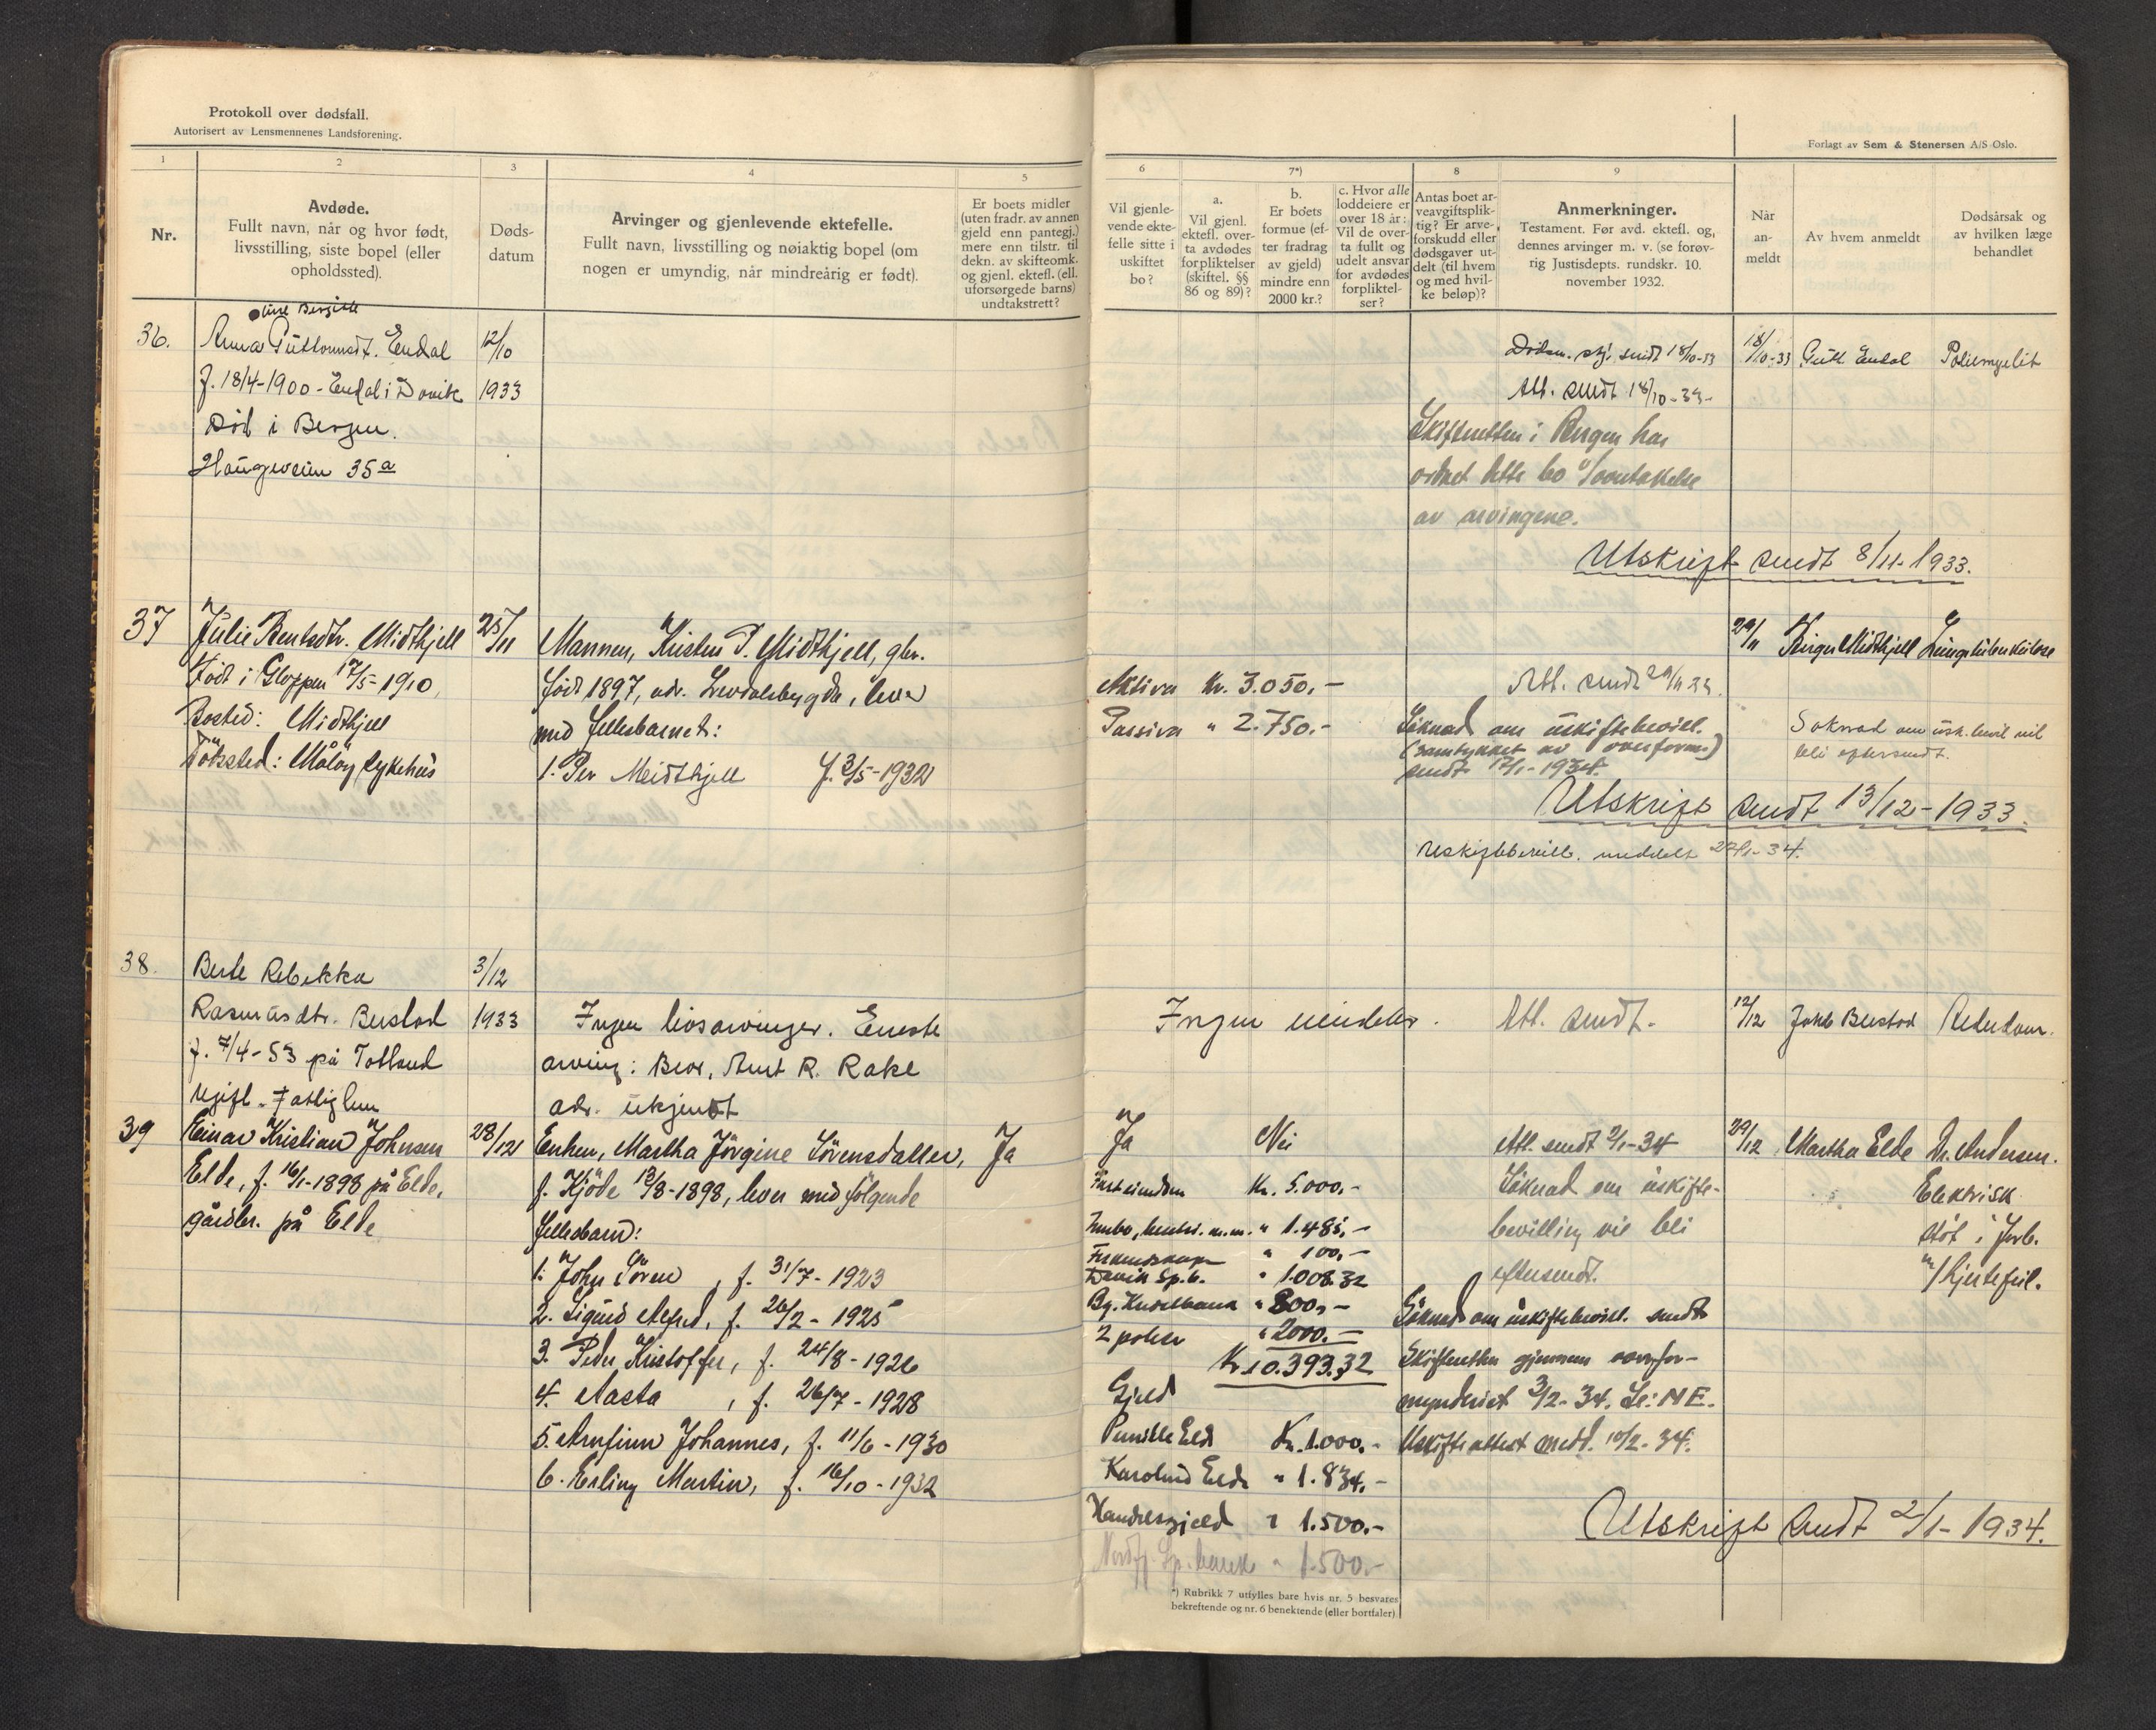 Protokoll over dødsfall.
Autorisert av Lensmennenes Landsforening.
Forlagt av Sem & Stenersen A/S Oslo.
1
2
3
4
5
6
7*)
8
9
Nr.
Avdøde.
Fullt navn, når og hvor født,
livsstilling, siste bopel (eller
opholdssted).
Døds-
datum
Arvinger og gjenlevende ektefelle.
Fullt navn, livsstilling og nøiaktig bopel (om
nogen er umyndig, når mindreårig er født).
Er boets midler
(uten fradr. av annen
gjeld enn pantegj.)
mere enn tilstr. til
dekn. av skifteomk.
og gjenl. ektefl. (ell.
uforsørgede barns)
undtakstrett?
Vil gjenle-
vende ekte-
felle sitte i
uskiftet
bo?
a.
Vil gjenl.
ektefl. over-
ta avdødes
forpliktelser
(skiftel. §§
86 og 89)?
b.
Er boets
formue (ef-
ter fradrag
av gjeld)
mindre enn
2000 kr.?
c. Hvor alle
loddeiere er
over 18 år:
Vil de over-
ta fullt og
udelt ansvar
for avdødes
forpliktel-
ser?
Antas boet ar-
veavgiftsplik-
tig? Er arve-
forskudd eller
dødsgaver ut-
delt (til hvem
og med hvil-
ke beløp)?
Anmerkninger.
Testament. Før avd. ektefl. og,
dennes arvinger m. v. (se forøv-
rig Justisdepts. rundskr. 10.
november 1932.
Når
an-
meldt
Av hvem anmeldt
Dødsårsak og
av hvilken læge
behandlet
36.
Anna Guttormsdt. Endal
f. 18/4-1900 - Endal i Davik
Död i Bergen.
Haugeveien 35a
12/10
1933
Dödsm. skj. sendt 18/10-33
Att. sendt 18/10-33-
Skifteretten i Bergen har
ordnet dette bo
av arvingene.
Utskrift sendt 8/11-1933.
18/10-33
Gutt. Endal
Poliemyelit
37
Julie Bentsdtr. Midthjell
Født i Gloppen 17/5-1910,
Bosted: Midthjell
Dödssted: Måløy sykehus
25/11
Mannen, Kristen P. Midthjell, gbr.
født 1897, adr. Levdalsbygda, lever
med fellesbarnet:
1. Per Meidthjell f. 3/5-1932
Aktiva Kr. 3.050,-
Passiva " 2.750.-
Att. sendt 29/11 33.
Söknad om uskiftebevill.
(samtykket av overform.)
sendt 17/1-1934.
Utskrift sendt 13/12-1933.
Uskiftebevill. meddelt 27/1-34.
29/11
Birger Midthjell
Lungetuberkulose
Søknad om usk.bevil vil
bli eftersendt.
38.
Berte Rebekka
Rasmusdtr. Berstad
f. 7/4-53 på Totland
Ugift. Fattiglem
3/12
1933
Ingen livsarvinger. Eneste
arving: Bror, Anut R. Rake
adr. ukjendt
Ingen eiendeler.
Att. sendt.
12/12
Jakob Berstad
Alderdom.
39
Einar Kristian Johnsen
Elde, f. 16/1-1898 på Elde,
gårdbr. på Elde
28/12
Enken, Martha Jörgine Sörensdatter,
f. Kjöde 13/8-1898, lever med følgende
fellesbarn:
1. John Sören, f. 31/7-1923
2. Sigurd Alfred, f. 26/2-1925
3. Peder Kristoffer, f. 24/8-1926
4. Aasta, f. 26/7-1928
5. Arnfinn Johannes, f. 11/6-1930
6. Erling Martin, f. 16/10-1932
Ja
Ja
Nei
Fast eiendom Kr. 5.000,-
Innbo, m.m. " 1.485,-
Fiskeredskap " 100,-
Davik Sp.b. " 1.008.32
Bg. Kreditbank " 800,-
2 poliser " 2000.-
Kr 10.393.32
Gjeld
Pernille Elde Kr. 1.000.-
Karoline Elde " 1.834,-
Handelsgjeld " 1.500.-
Nordfj. Sp.bank " 1.500.-
Att. sendt 2/1-34
Söknad om uskifte-
bevilling vil bli
eftersendt.
Söknad om uskiftebevill. sendt
Skifteretten gjennem overfor-
mynderiet 3/2-34. Le: N E.
Uskifteattest medd. 10/2-34.
Utskrift sendt 2/1-1934.
29/12
Martha Elde
Dr. Andersen.
Elektrisk
stöt i forb.
m/hjertefeil.
*) Rubrikk 7 utfylles bare hvis nr. 5 besvares
bekreftende og nr. 6 benektende (eller bortfaler).